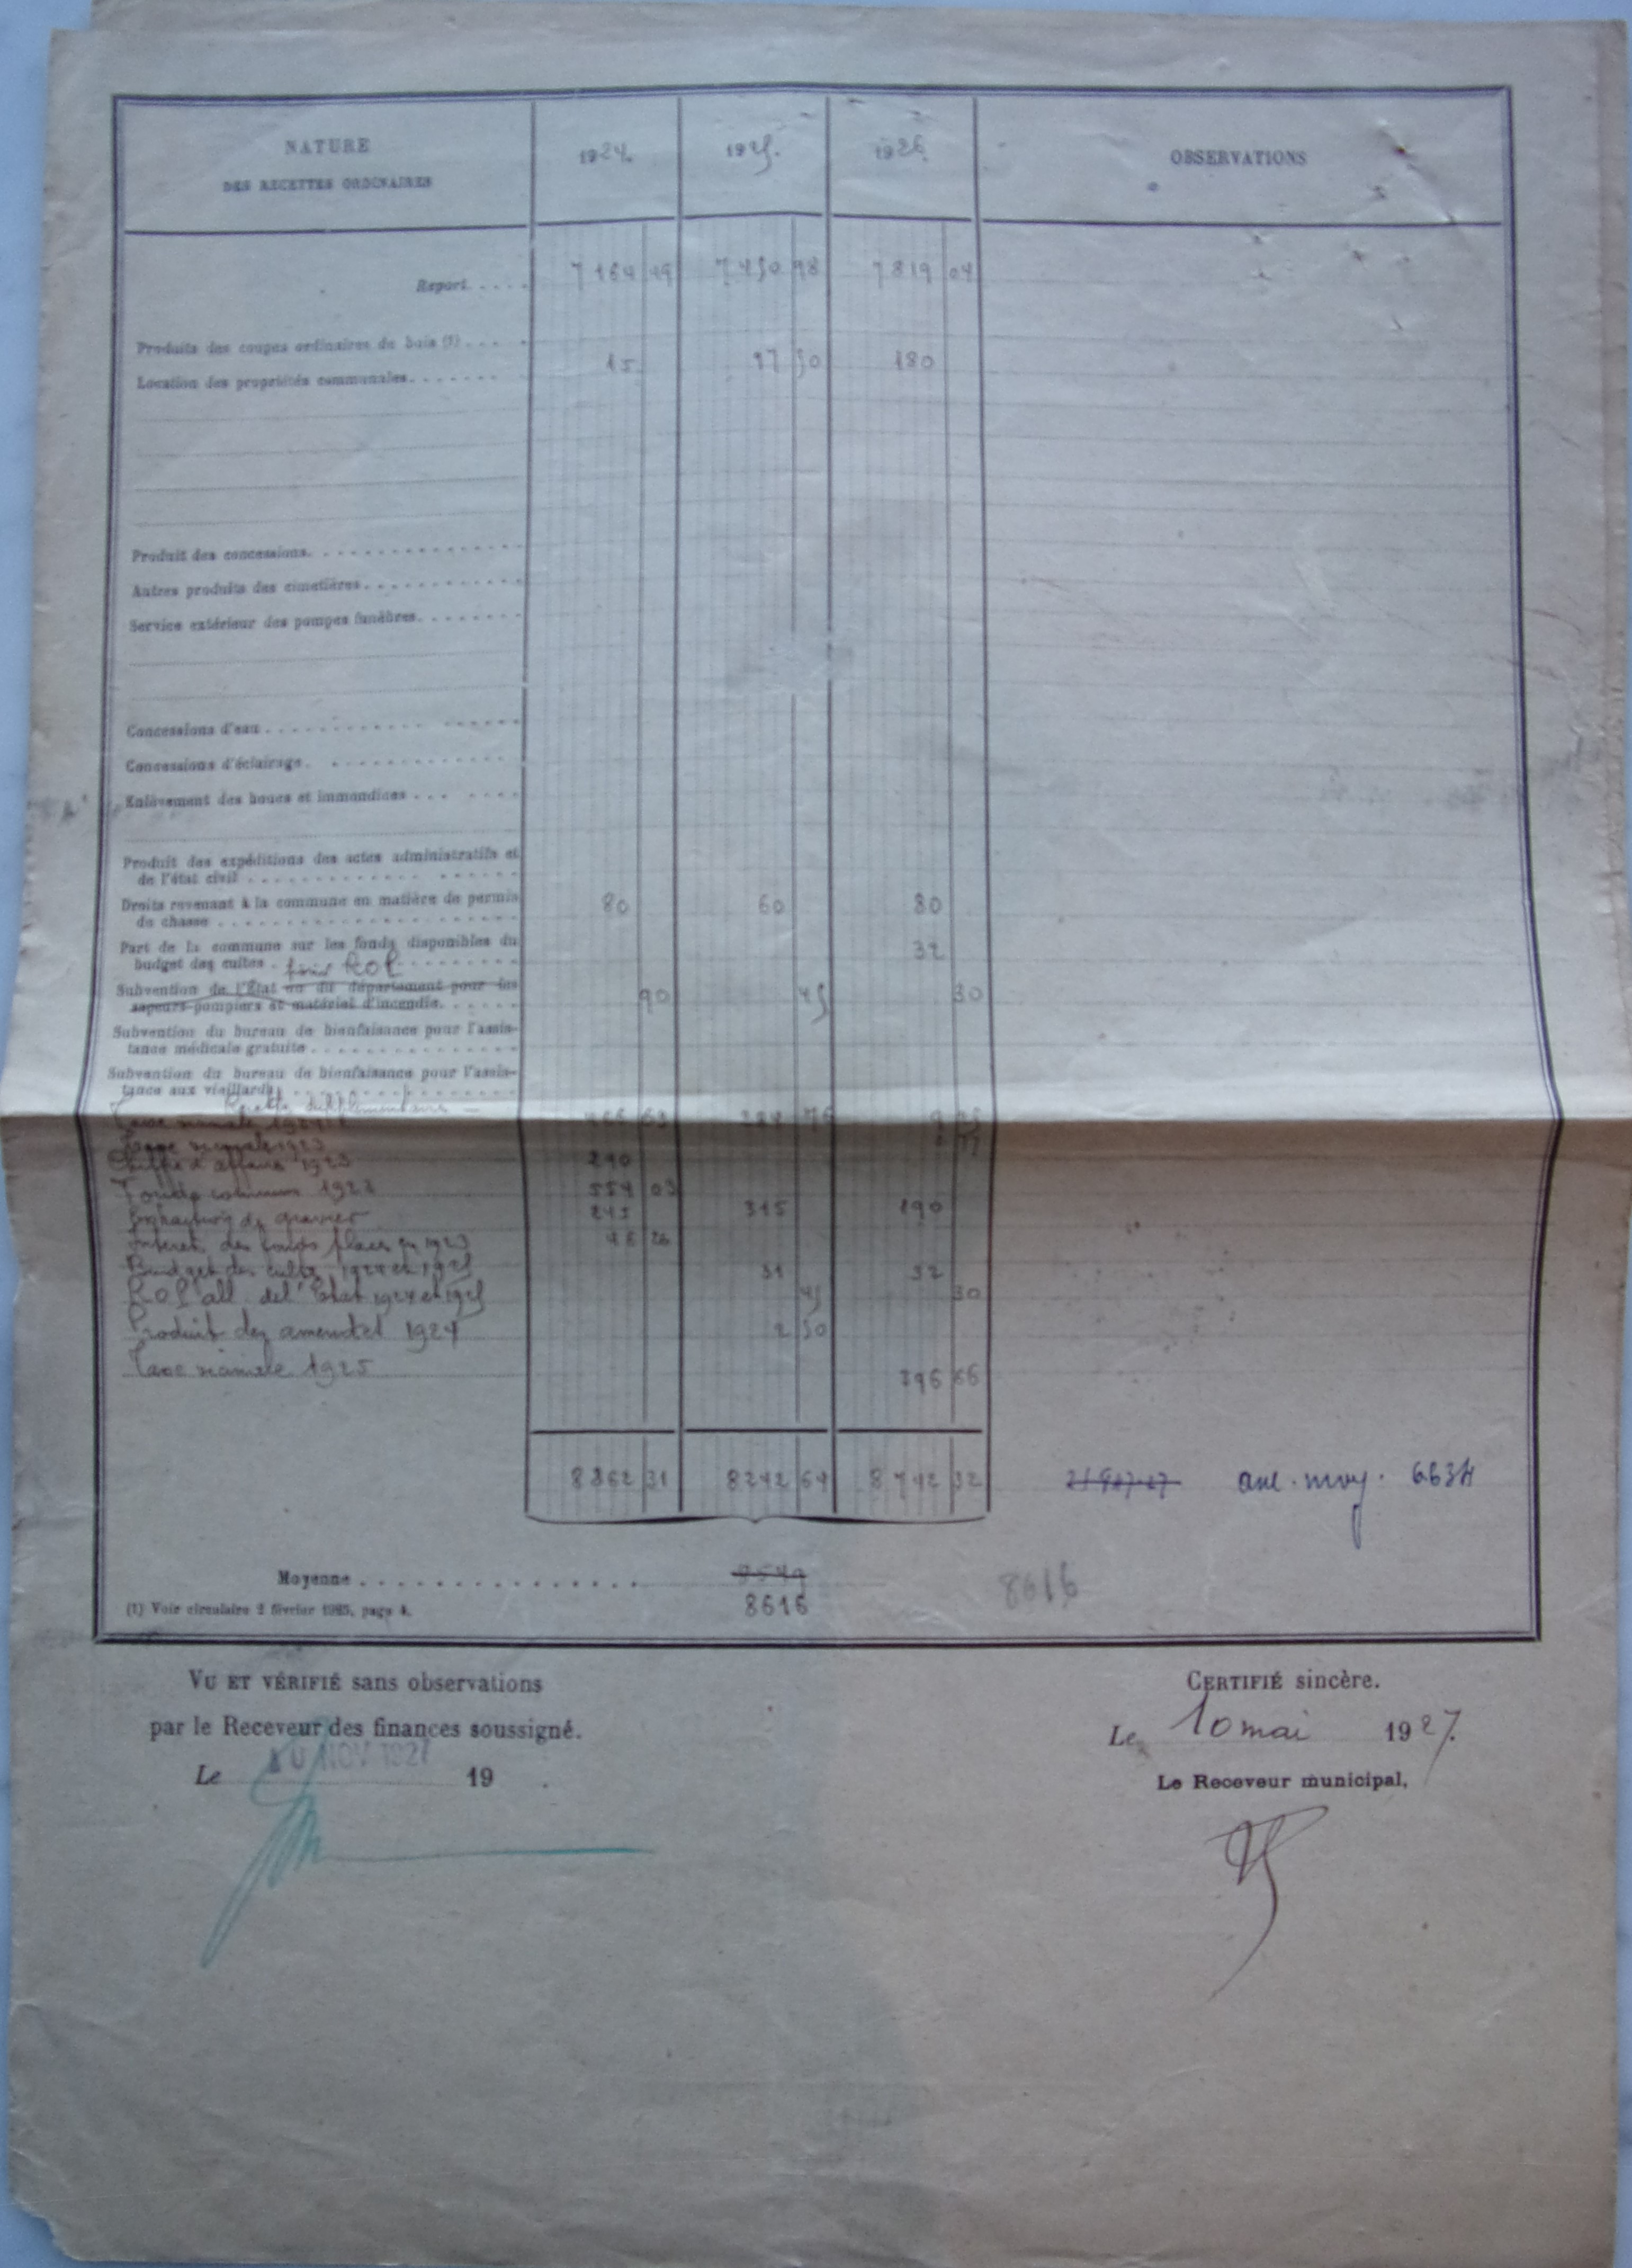 NATURE
DES RECETTES ORDINAIRES
1924. 1925. 1926. OBSERVATIONS
Report..... 7164 49 7450 98 7819 04
Produits des coupes ordinaires de bois (1)....
Location des propriétés communales....... 15 97 50 180
Produit des concessions...............
Autres produits des cimetières............
Service extérieur des pompes funèbres........
Concessions d'eau..................
Concessions d'éclairage...............
Enlèvement des boues et immondices.......
Produit des expéditions des actes administratifs et
de l'état civil..................
Droits revenant à la commune en matière de permis
de chasse.................... 80 60 80
Part de la commune sur les fonds disponibles du 32
budget des cultes.
Subvention de l'État ou du département pour les
sapeurs-pompiers et matériel d'incendie...... 90 45 30
Subvention du bureau de bienfaisance pour l'assis-
tance médicale gratuite..............
Subvention du bureau de bienfaisance pour l'assis-
tance aux vieillards
1923
Chiffre d'affaires 1923 290
Fonds commun 1923 554 03
gravier 245 315 190
Intérêt des fonds placés en 1923 48 26
Budget des cultes 1924 et 1925 31 32
all. de l'Etat 1924 et 1925 45 30
Produit des amendes 1924 2 50
Taxe vicinale 1925 396 66
8862 31 8242 64 8742 32 6634
Moyenne...............
8616 8616
(1) Voir circulaire 2 février 1925, page 4.
VU ET VÉRIFIÉ sans observations
par le Receveur des finances soussigné.
Le NOV 1927 19 .
CERTIFIÉ sincère.
Le 10 mai 1927.
Le Receveur municipal,